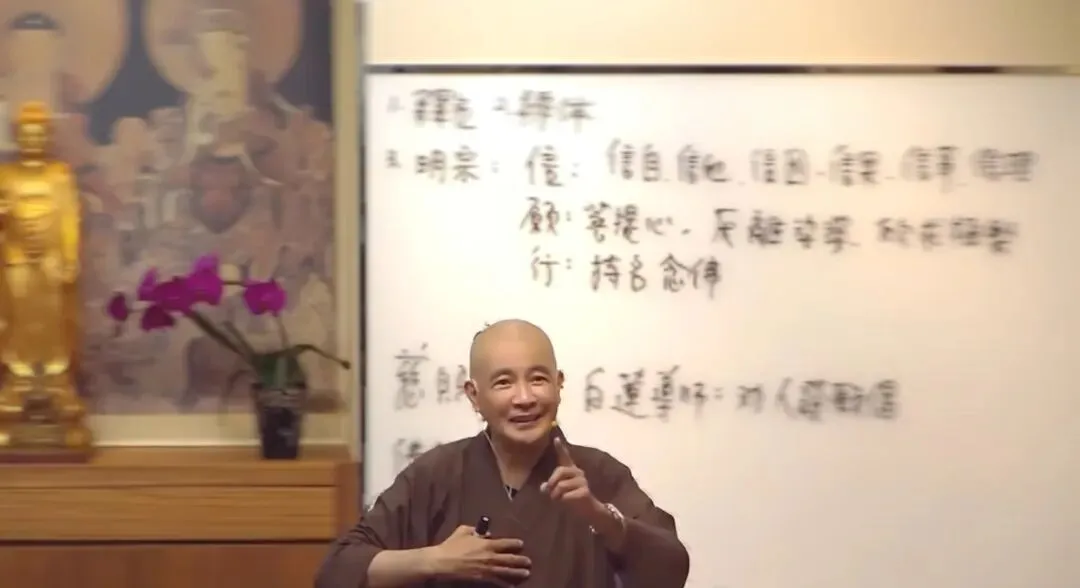 1. 釋名 2. 辨体
3. 明宗: 信: 信自、信他、信因、信果、信事、信理
願: 菩提心、厌離娑婆、欣求極樂
行: 持名念佛
慈 白蓮導師: 对人